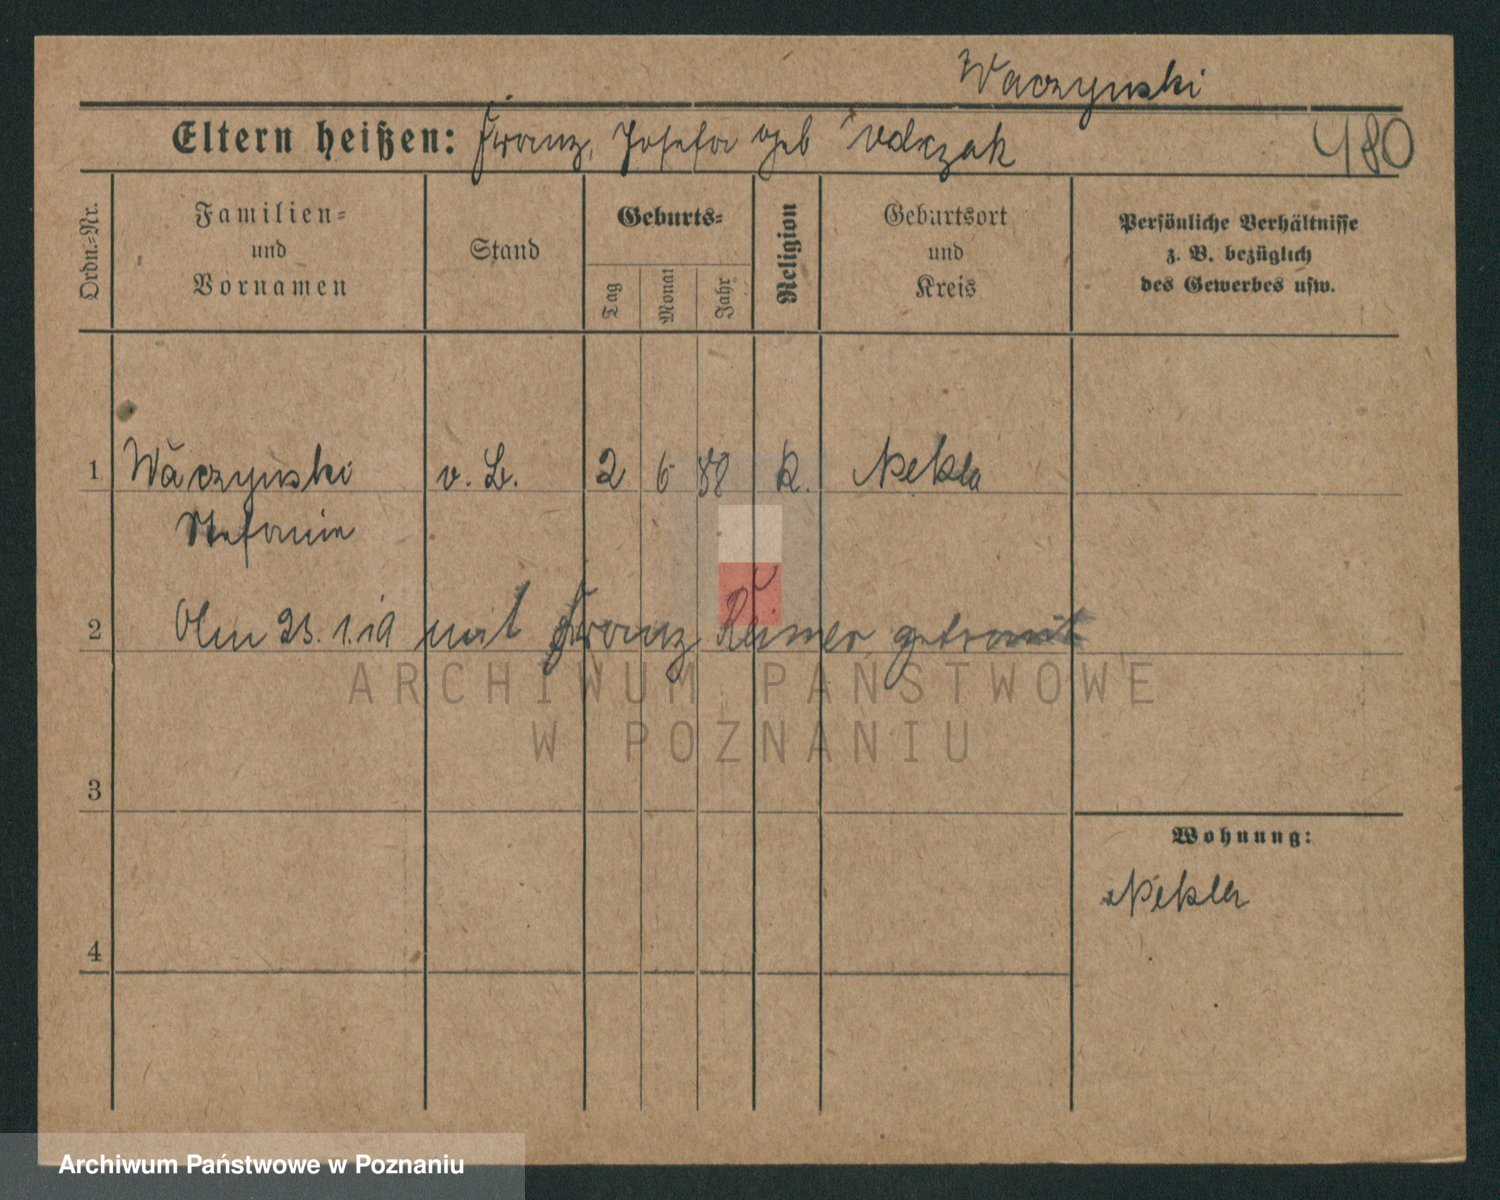 Waczynski
Eltern heißen: Franz, Josefa geb
480
Ordn.-Nr.
Familien-
und
Vornamen
Stand
Geburts-
Tag
Monat
Jahr
Religion
Geburtsort
und
Kreis
Persönliche Verhältnisse
z. B. bezüglich
des Gewerbes usw.
1 Waczynski v. B. 2 6 88 K. Nekla
Stefanie
2 Am 23. 1. 19 mit Franz getraut
ARCHIWUM PAŃSTWOWE
W POZNANIU
3
Wohnung:
Nekla
4
Archiwum Państwowe w Poznaniu